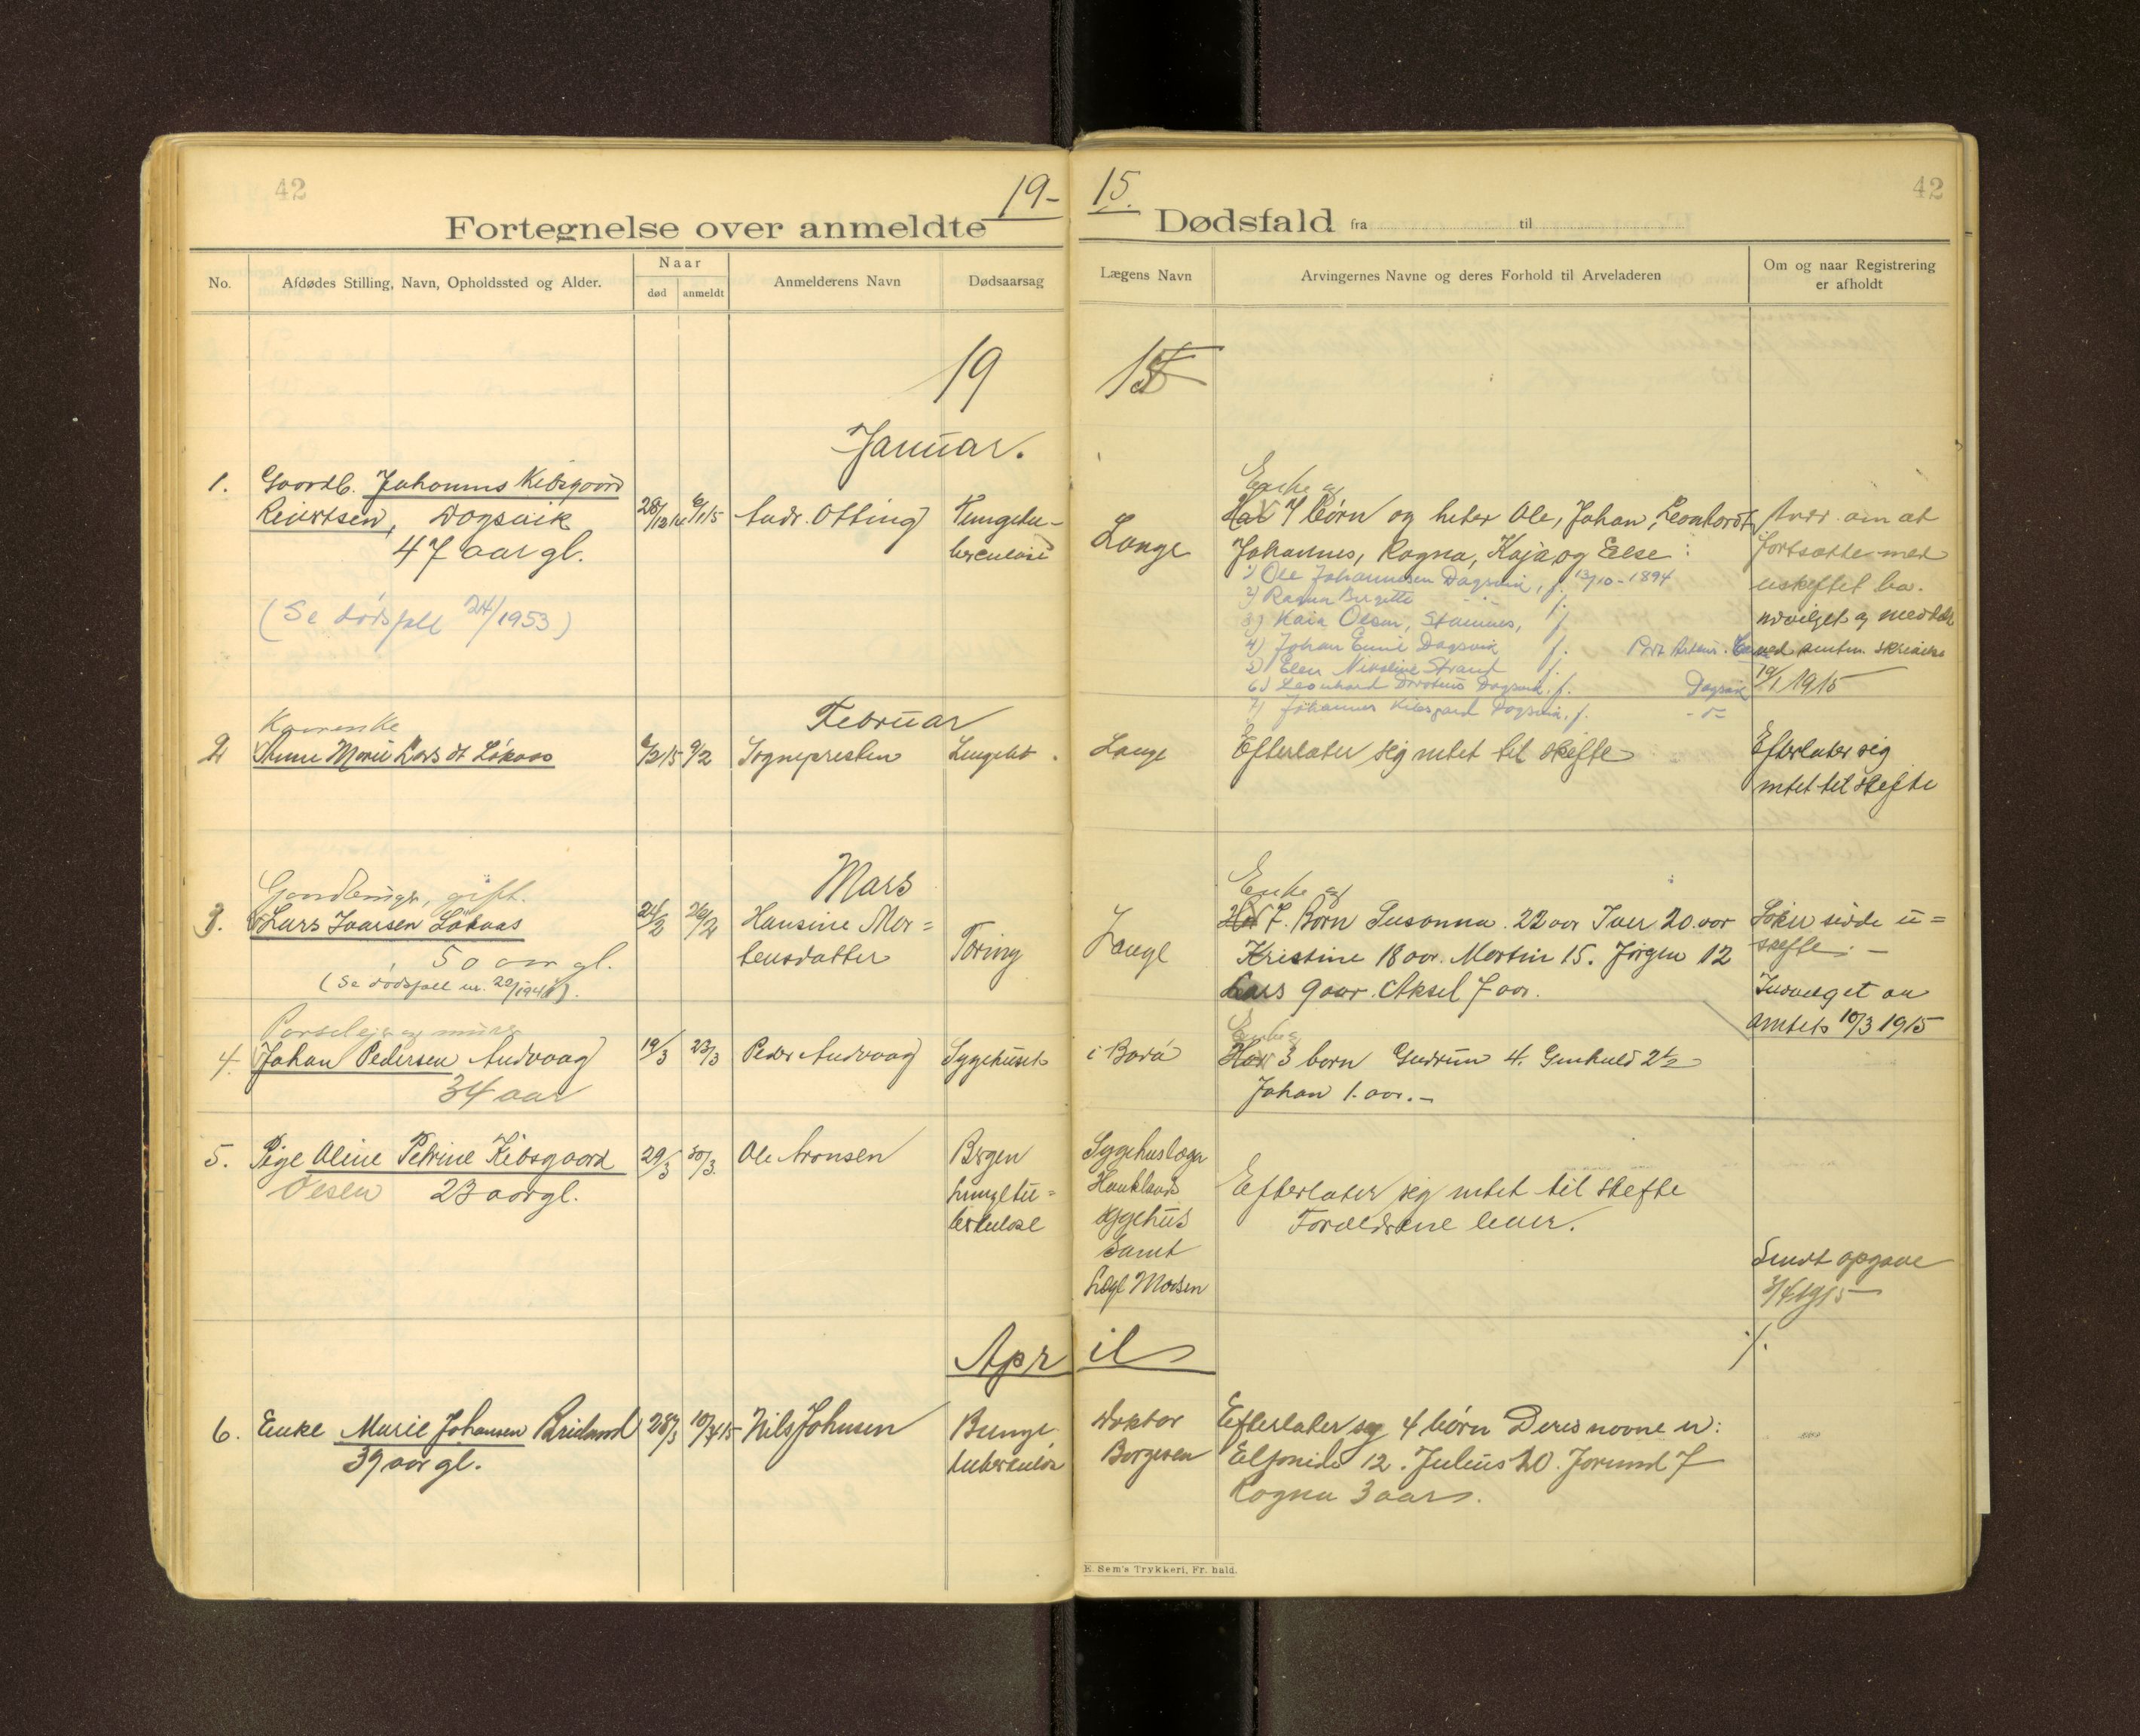 42
19-
15.
42
Fortegnelse over anmeldte
Dødsfald fra til
No.
Afdødes Stilling, Navn, Opholdssted og Alder.
Naar
død
anmeldt
Anmelderens Navn
Dødsaarsag
Lægens Navn
Arvingernes Navne og deres Forhold til Arveladeren
Om og naar Registrering
er afholdt
19
15
Januar.
1.
Gaardb. Johannes Kibsgaard
Reiertsen, Dagsvik
47 aar gl.
(Se dødsfall 24/1953)
28/12 14
6/1 15
Andr. Otting
Lungetu-
berculose
Lange
Enke og
Har 7 børn og heter Ole, Johan, Leonhardt
Johannes, Ragna, Kaja og Else
1) Ole Johannesen Dagsvik, f. 13/10-1894
2) Ragna Bergitte f.
3) Kaia Olsen, Stamnes, f.
4) Johan Emil Dagsvik f.
5) Elen Nikoline Strand f.
6) Leonhard Dagsvik, f. Dagsvik
7) Johannes Kibsgaard Dagsvik, f.
om at
fortsætte med
uskiftet bo.
ved amtm. skrivelse
19/1 1915
Februar
2
Anne Marie Lars dt Løkaas
6/2 15
9/2
Sognepresten
Lange
Efterlater sig intet til skifte
Efterlater sig
intet til skifte
Mars
3.
Gaardbruger, gift.
Lars Ivarsen Løkaas
50 aar gl.
(Se dødsfall nr. 22/1941).
24/2
26/2
Hansine Mor=
tensdatter
Tæring
Lange
Enke og
Har 7. Børn Susanna. 22 aar Iver 20. aar
Kristine 18 aar. Mortin 15. Jørgen 12
Lars 9 aar. Aksel 7 aar.
Søker sidde u=
skifte. -
Indvilget av
Amtet 10/3 1915
4.
Parseleier og murer
Johan Pedersen Andvaag
34 aar
19/3
23/3
Peder Andvaag
Sygehuset
i Bodø
Enke og
Har 3 børn Gudrun 4. Gunhild 2 1/2
Johan 1. aar. -
5.
Pige Oline Petrine Kibsgaard
Olsen 23 aar gl.
29/3
30/3
Ole Aronsen
Bergen
Lungetu=
berkulose
Sygehuslæge
Hauklands
sygehus
Samt
Læge Madsen
Efterlater sig intet til skifte
Forældrene lever.
Sendt opgave
3/4 1915
Apr
il
6.
Enke Marie Johansen
39 aar gl.
28/3
10/4 15
Nils Johnsen
tuberkulose
Doktor
Borgersen
Efterlater sig 4 børn Deres navne er:
12. Julius 20. Jorund 7
Ragna 3 aar.
E. Sem's Trykkeri, Fr. hald.